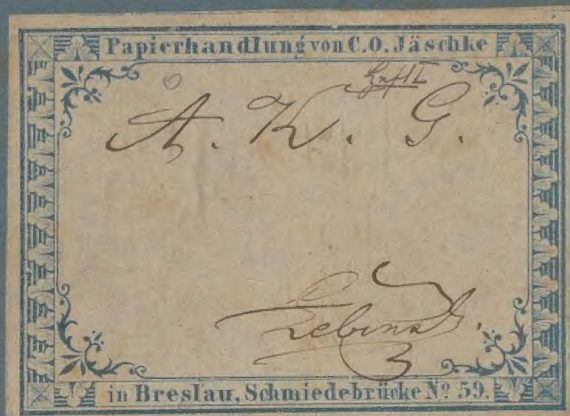 Papierhandlung von C.O. Jäschke
Heft I
A. K. G.
in Breslau, Schmiedebrücke No. 59.